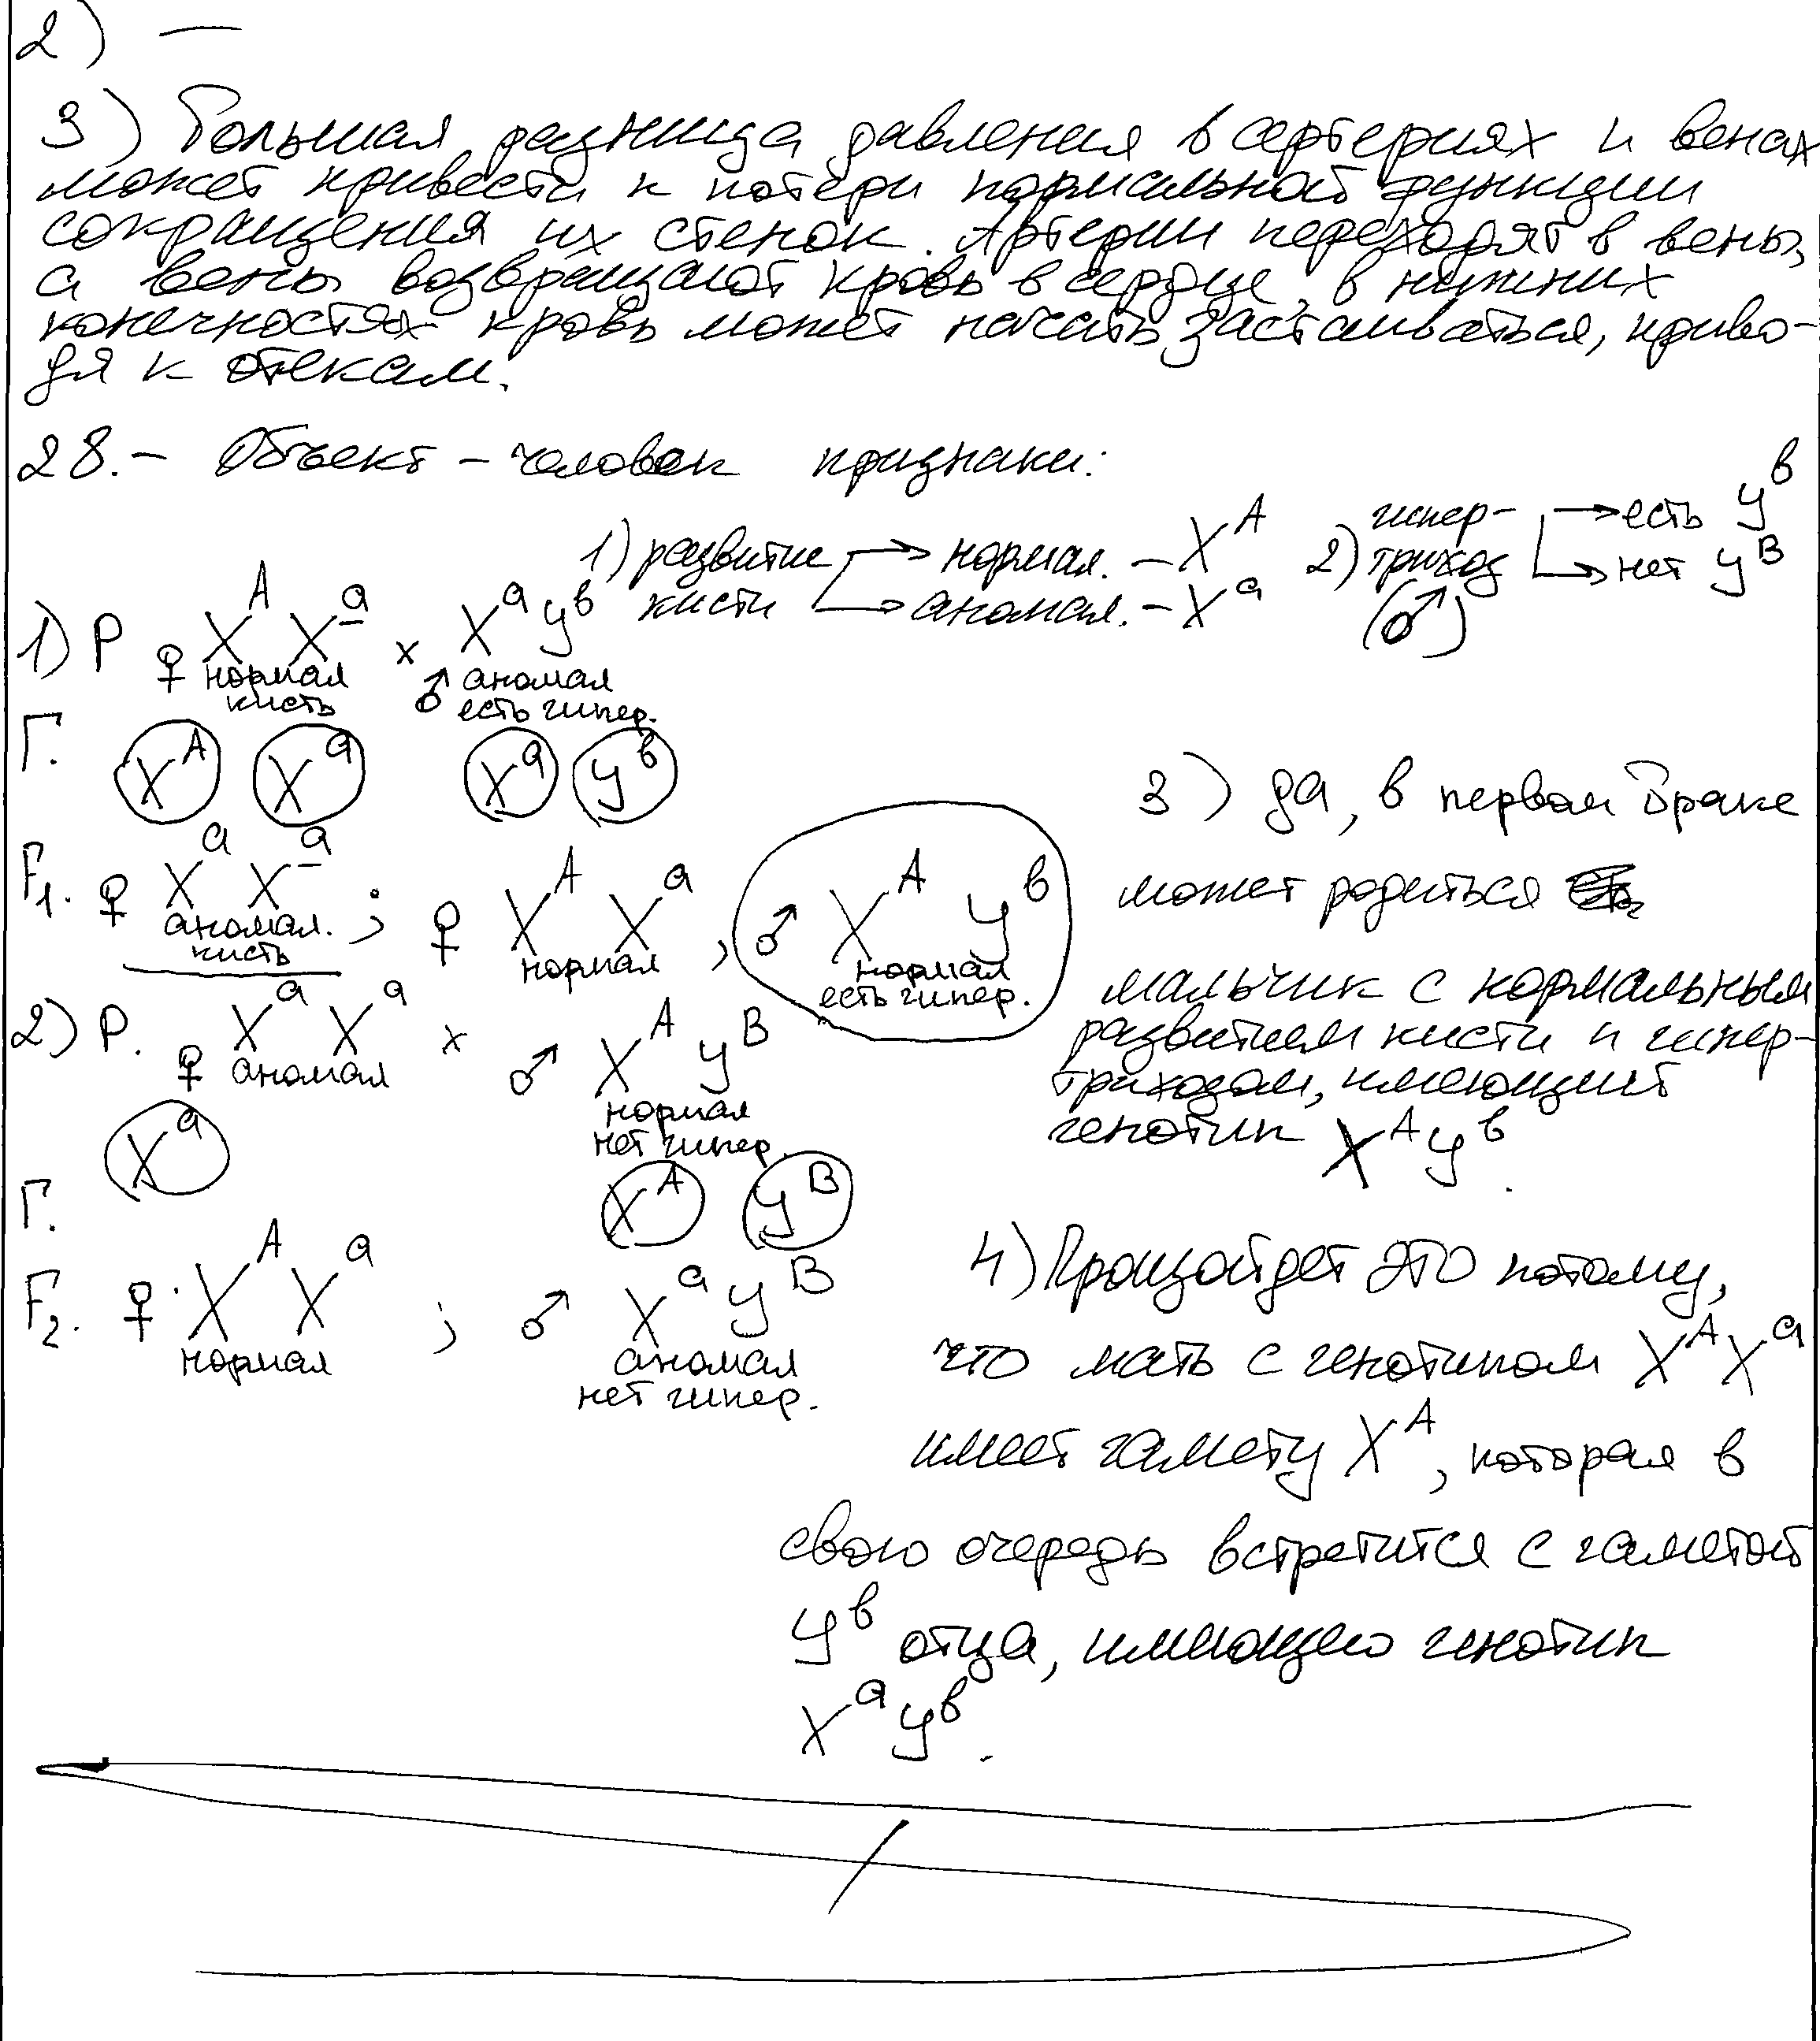 2) —
3) Большая разница давления в артериях и венах
может привести к потери нормальной функции
сокращения их стенок. Артерии переходят в вены,
а вены возвращают кровь в сердце, в нижних
конечностях кровь может начать застаиваться, приво-
дя к отекам.
28. – Объект – человек признаки:
1) развитие кисти → нормал. – X^A
→ аномал. – X^a
2) гипер-
трихоз (♂) → есть y^b
→ нет y^B
1) P ♀ X^A X^a x ♂ X^a y^b
нормал кисть аномал есть гипер.
Г. X^A X^a X^a y^b
F1. ♀ X^a X^a ; ♀ X^A X^a , ♂ X^A y^b
аномал. кисть нормал нормал есть гипер.
2) P. ♀ X^a X^a x ♂ X^A y^B
аномал нормал нет гипер.
Г. X^a X^A y^B
F2. ♀ X^A X^a ; ♂ X^a y^B
нормал аномал нет гипер.
3) да, в первом браке
может родиться
мальчик с нормальным
развитием кисти и гипер-
трихозом, имеющий
генотип X^A y^b.
4) Произойдет это потому,
что мать с генотипом X^A X^a
имеет гамету X^A, которая в
свою очередь встретится с гаметой
y^b отца, имеющего генотип
X^a y^b.